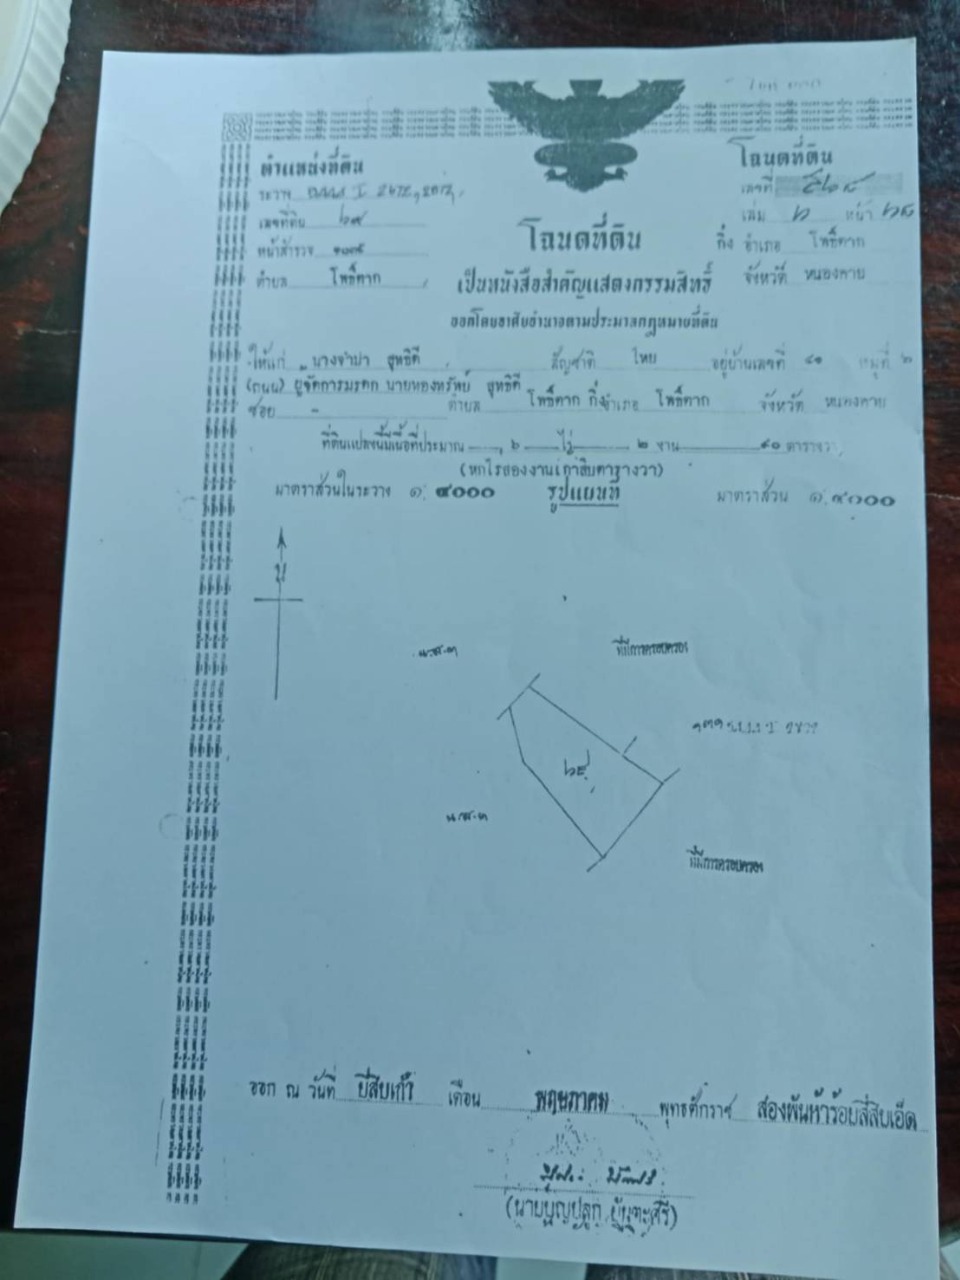 โฉนดที่ดิน
ตำแหน่งที่ดิน
ระวาง
เลขที่ดิน ๖๙
หน้าสำรวจ ๑๐๓๙
ตำบล โพธิ์ตาก
เลขที่
เล่ม ๖ หน้า
กิ่ง อำเภอ โพธิ์ตาก
จังหวัด หนองคาย
โฉนดที่ดิน
เป็นหนังสือสำคัญแสดงกรรมสิทธิ์
ออกโดยอาศัยอำนาจตามประมวลกฎหมายที่ดิน
ให้แก่ นางจำปา สุทธิดี สัญชาติ ไทย อยู่บ้านเลขที่ ๔๑ หมู่ที่ ๒
(ถนน) ผู้จัดการมรดก นายทองทรัพย์ สุทธิดี
ซอย - ตำบล โพธิ์ตาก กิ่งอำเภอ โพธิ์ตาก จังหวัด หนองคาย
ที่ดินแปลงนี้มีเนื้อที่ประมาณ ๖ ไร่ ๒ งาน ๙๐ ตารางวา
(หกไร่สองงานเก้าสิบตารางวา)
มาตราส่วนในระวาง ๑: ๔๐๐๐ รูปแผนที่ มาตราส่วน ๑: ๔๐๐๐
น
น.ส.๓
ที่มีการครอบครอง
๖๙
น.ส.๓
ที่มีการครอบครอง
ออก ณ วันที่ ยี่สิบเก้า เดือน พฤษภาคม พุทธศักราช สองพันห้าร้อยสี่สิบเอ็ด
(นายบุญปลูก